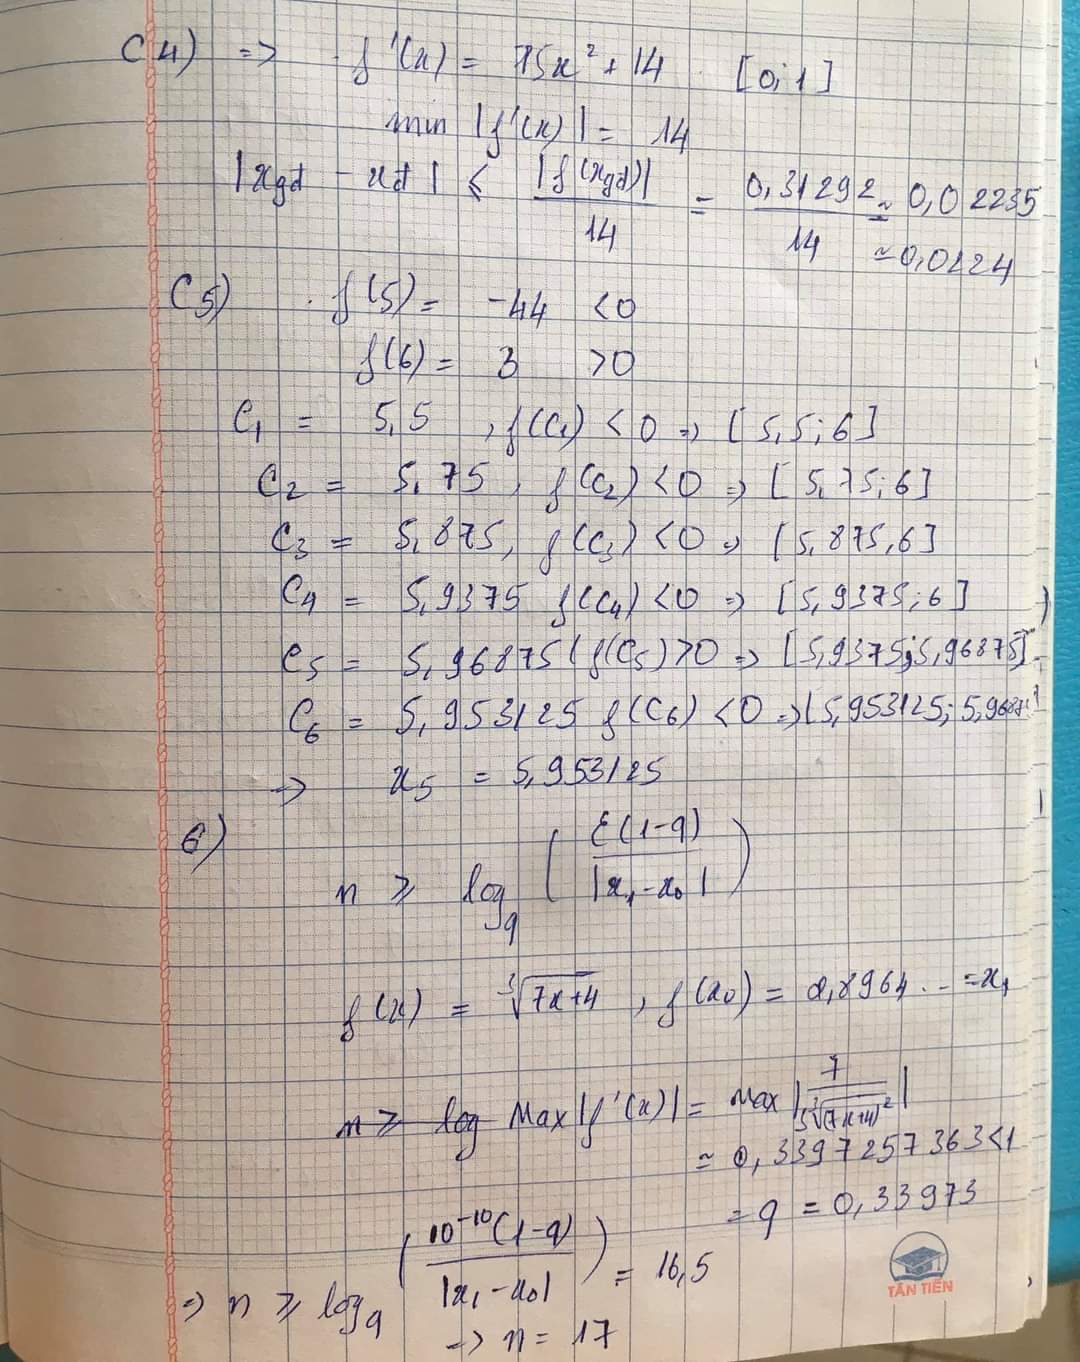 C4) => f'(x) = 75x² + 14 [0;1]
min |f'(x)| = 14
|x_gđ - x_đ| ⩽ |f(x_gđ)| / 14 = 0,31292 / 14 ≈ 0,02235
≈ 0,0224
C5) . f(5) = -44 < 0
f(6) = 3 > 0
C₁ = 5,5 , f(C₁) < 0 => [5,5;6]
C₂ = 5,75 , f(C₂) < 0 => [5,75;6]
C₃ = 5,875, f(C₃) < 0 => [5,875,6]
C₄ = 5,9375 f(C₄) < 0 => [5,9375;6]
C₅ = 5,96875 ( f(C₅) > 0 => [5,9375;5,96875]
C₆ = 5,953125 f(C₆) < 0 => [5,953125; 5,96875]
=> x₅ = 5,953125
6)
n ⩾ log_q ( ε(1-q) / |x₁-x₀| )
f(x) = ∛(7x+4) , f(x₀) = 2,8964... = x₁
n ⩾ log Max |f'(x)| = Max | 7 / 3∛(7x+4)² |
≈ 0,3397257363 < 1
= q = 0,33973
=> n ⩾ log_q ( 10⁻¹⁰(1-q) / |x₁-x₀| ) = 16,5
=> n = 17
TÂN TIẾN